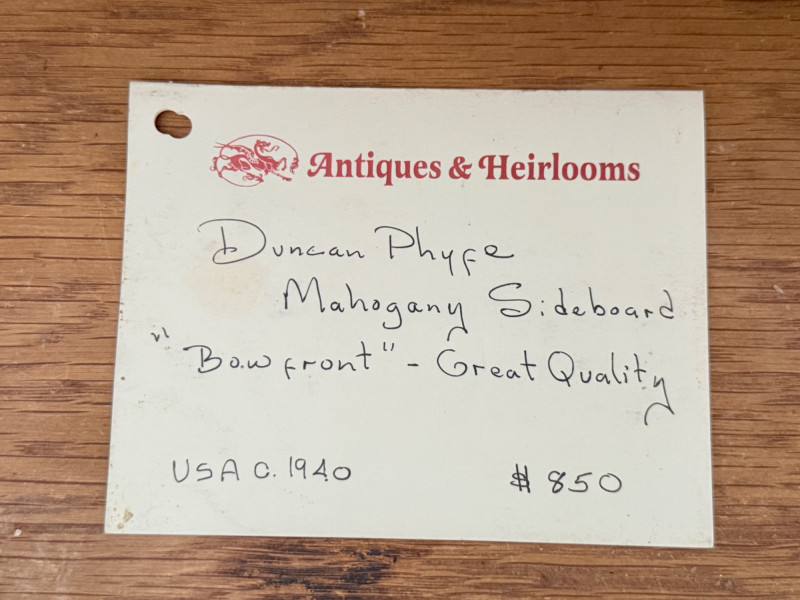 Antiques & Heirlooms
Duncan Phyfe
Mahogany Sideboard
"Bowfront" - Great Quality
USA C. 1940
$850